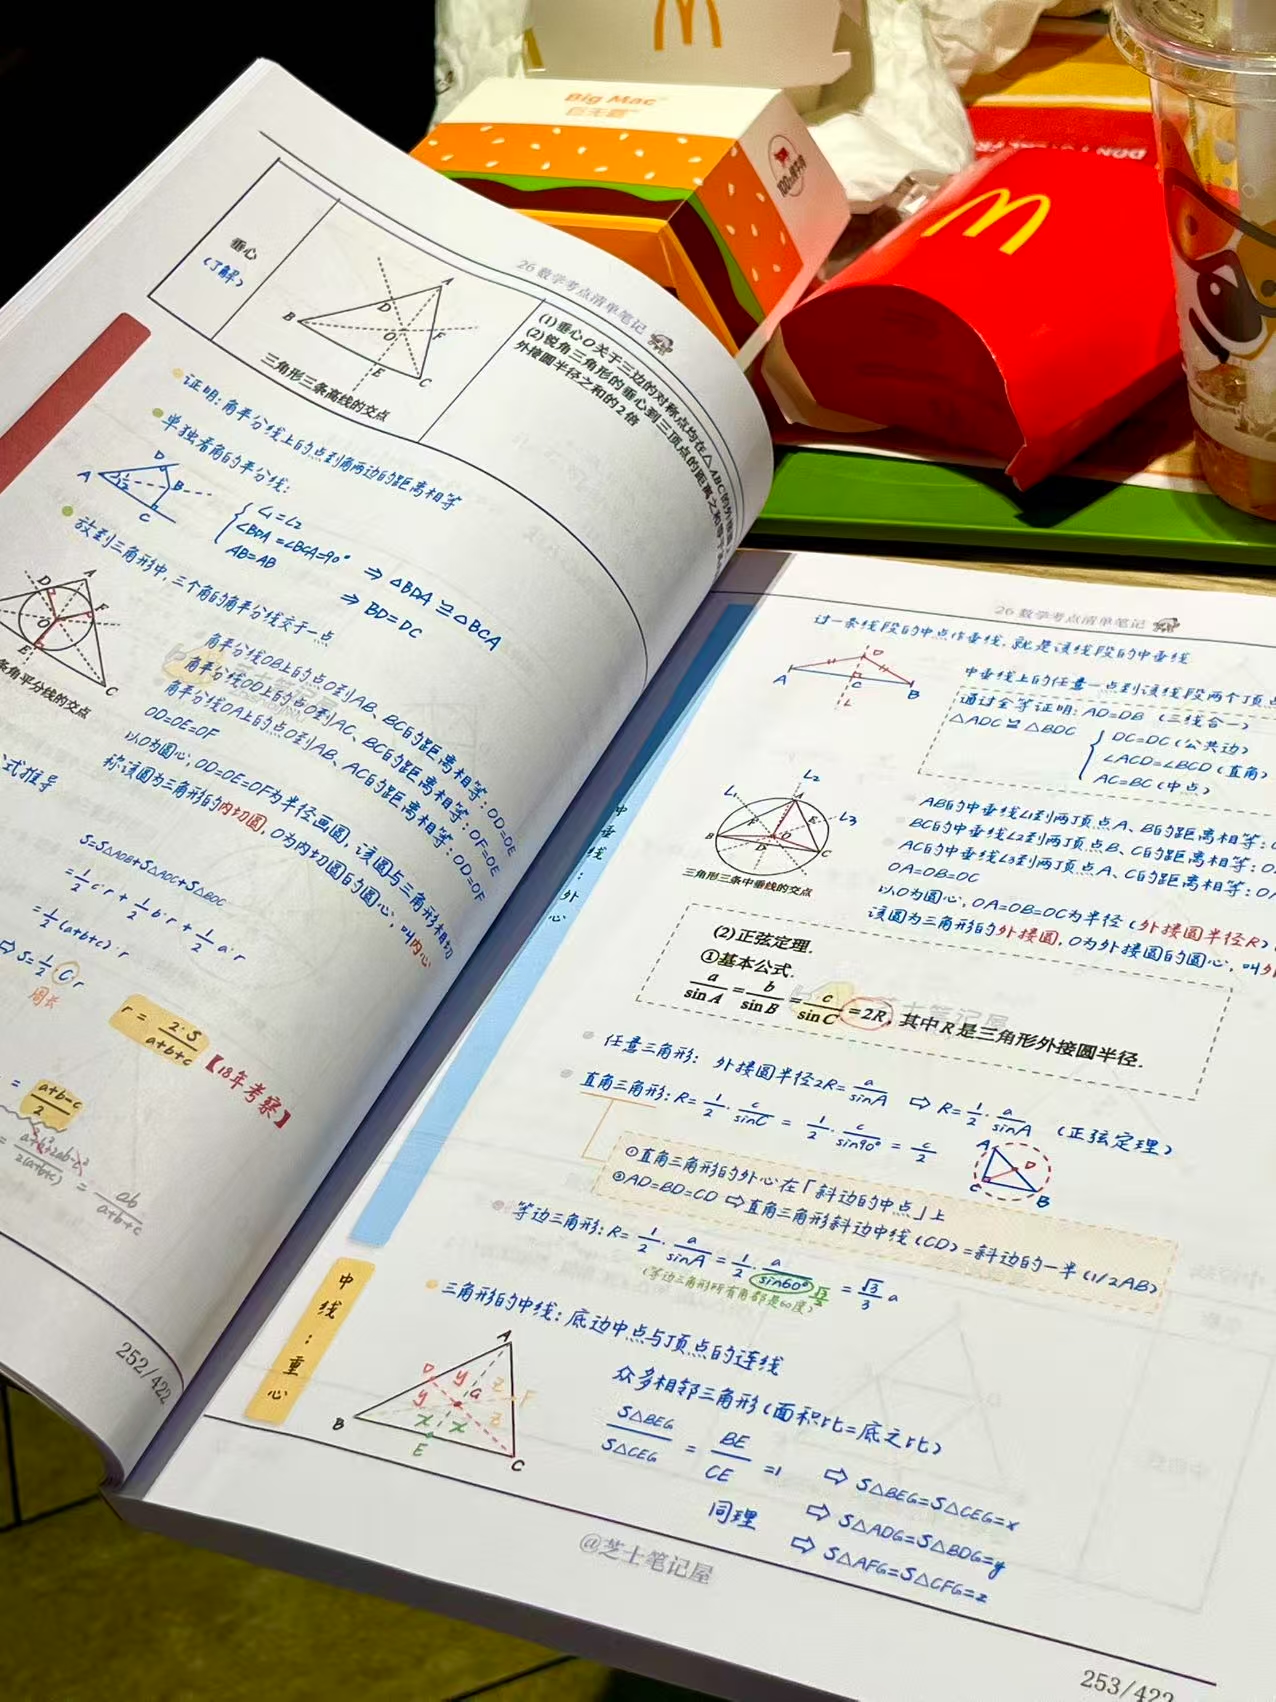 Big Mac
巨无霸
26 数学考点清单笔记
垂心
(了解)
A
B
D
O
F
E
C
三角形三条高线的交点
(1)垂心O关于三边的对称点均在△ABC的外接
(2)锐角三角形的垂心到三顶点的距离之和等于
外接圆半径之和的2倍
证明:角平分线上的点到角两边的距离相等
单独看角的平分线:
A
D
B
C
1
2
∠1=∠2
∠BDA=∠BCA=90°
AB=AB
⇒ △BDA≌△BCA
⇒ BD=DC
放到三角形中,三个角的角平分线交于一点
D
A
F
O
E
C
条角平分线的交点
角平分线OB上的点O到AB、BC的距离相等:OD=OE
角平分线OD上的点O到AC、BC的距离相等:OF=OE
角平分线OA上的点O到AB、AC的距离相等:OD=OF
OD=OE=OF
以O为圆心,OD=OE=OF为半径画圆,该圆与三角形相切
称该圆为三角形的内切圆,O为内切圆的圆心,叫内心
式推导
S=S△AOB+S△AOC+S△BOC
=1/2 c·r + 1/2 b·r + 1/2 a·r
=1/2 (a+b+c)·r
⇨ S=1/2 C r
周长
r = 2·S / a+b+c
【18年考察】
= a+b-c / 2
= ab / a+b+c
252/422
26 数学考点清单笔记
过一条线段的中点作垂线,就是该线段的中垂线
A
D
C
B
L
中垂线上的任意一点到该线段两个顶点
通过全等证明:AD=DB (三线合一)
△ADC≌△BDC
DC=DC (公共边)
∠ACD=∠BCD (直角)
AC=BC (中点)
中垂线:外心
L1
L2
L3
A
B
C
D
E
F
O
三角形三条中垂线的交点
AB的中垂线L1到两顶点A、B的距离相等:
BC的中垂线L2到两顶点B、C的距离相等:
AC的中垂线L3到两顶点A、C的距离相等:
OA=OB=OC
以O为圆心,OA=OB=OC为半径(外接圆半径R)
该圆为三角形的外接圆,O为外接圆的圆心,叫外
(2)正弦定理.
①基本公式.
a/sin A = b/sin B = c/sin C =2R, 其中R是三角形外接圆半径.
任意三角形: 外接圆半径2R= a/sinA ⇨ R= 1/2 · a/sinA (正弦定理)
直角三角形:R= 1/2 · c/sinC = 1/2 · c/sin90° = c/2
A
D
C
B
①直角三角形的外心在「斜边的中点」上
②AD=BD=CD ⇨直角三角形斜边中线(CD)=斜边的一半(1/2AB)
等边三角形:R= 1/2 · a/sinA = 1/2 · a/sin60° = √3/3 a
(等边三角形所有角都是60度)
中线:重心
三角形的中线:底边中点与顶点的连线
A
D
y
G
z
F
y
z
x
x
B
E
C
众多相邻三角形(面积比=底之比)
S△BEG/S△CEG = BE/CE =1 ⇨ S△BEG=S△CEG=x
同理 ⇨ S△ADG=S△BDG=y
⇨ S△AFG=S△CFG=z
@芝士笔记屋
253/422